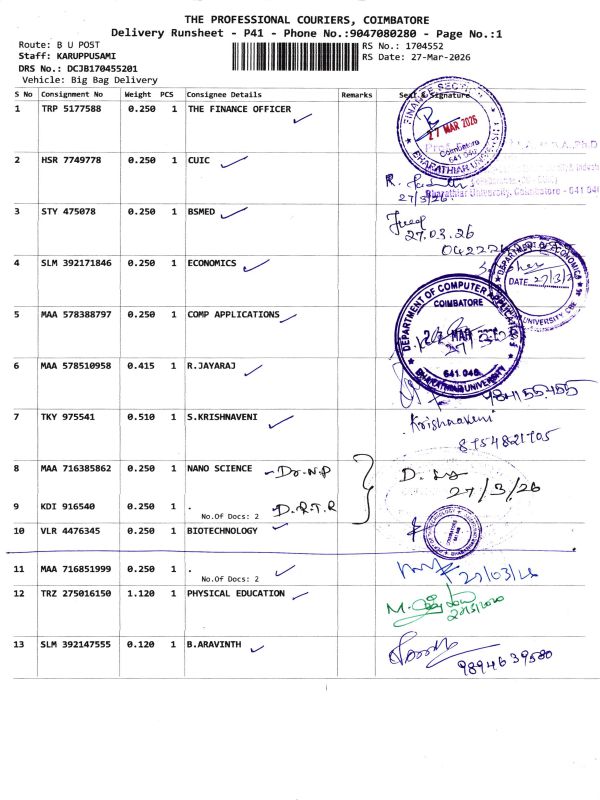 THE PROFESSIONAL COURIERS, COIMBATORE
Delivery Runsheet - P41 - Phone No.:9047080280 - Page No.:1
Route: B U POST
RS No.: 1704552
Staff: KARUPPUSAMI
RS Date: 27-Mar-2026
DRS No.: DCJB170455201
Vehicle: Big Bag Delivery
S No Consignment No Weight PCS Consignee Details Remarks Seal & Signature
1 TRP 5177588 0.250 1 THE FINANCE OFFICER
FINANCE SECTION
27 MAR 2026
Coimbatore
641 046
BHARATHIAR UNIVERSITY
Bharathiar University, Coimbatore - 641 046
2 HSR 7749778 0.250 1 CUIC
27/3/26
3 STY 475078 0.250 1 BSMED
27.03.26
4 SLM 392171846 0.250 1 ECONOMICS
DEPARTMENT OF ECONOMICS
DATE 27/3/2
5 MAA 578388797 0.250 1 COMP APPLICATIONS
DEPARTMENT OF COMPUTER APPLICATIONS
COIMBATORE
641 046
BHARATHIAR UNIVERSITY
6 MAA 578510958 0.415 1 R.JAYARAJ
9841155455
7 TKY 975541 0.510 1 S.KRISHNAVENI
Krishnaveni
8754821705
8 MAA 716385862 0.250 1 NANO SCIENCE - Dr. N.P
27/3/26
9 KDI 916540 0.250 1 . - D.R.T.R
No.Of Docs: 2
10 VLR 4476345 0.250 1 BIOTECHNOLOGY
11 MAA 716851999 0.250 1 .
No.Of Docs: 2
27/03/26
12 TRZ 275016150 1.120 1 PHYSICAL EDUCATION
13 SLM 392147555 0.120 1 B.ARAVINTH
9894639580